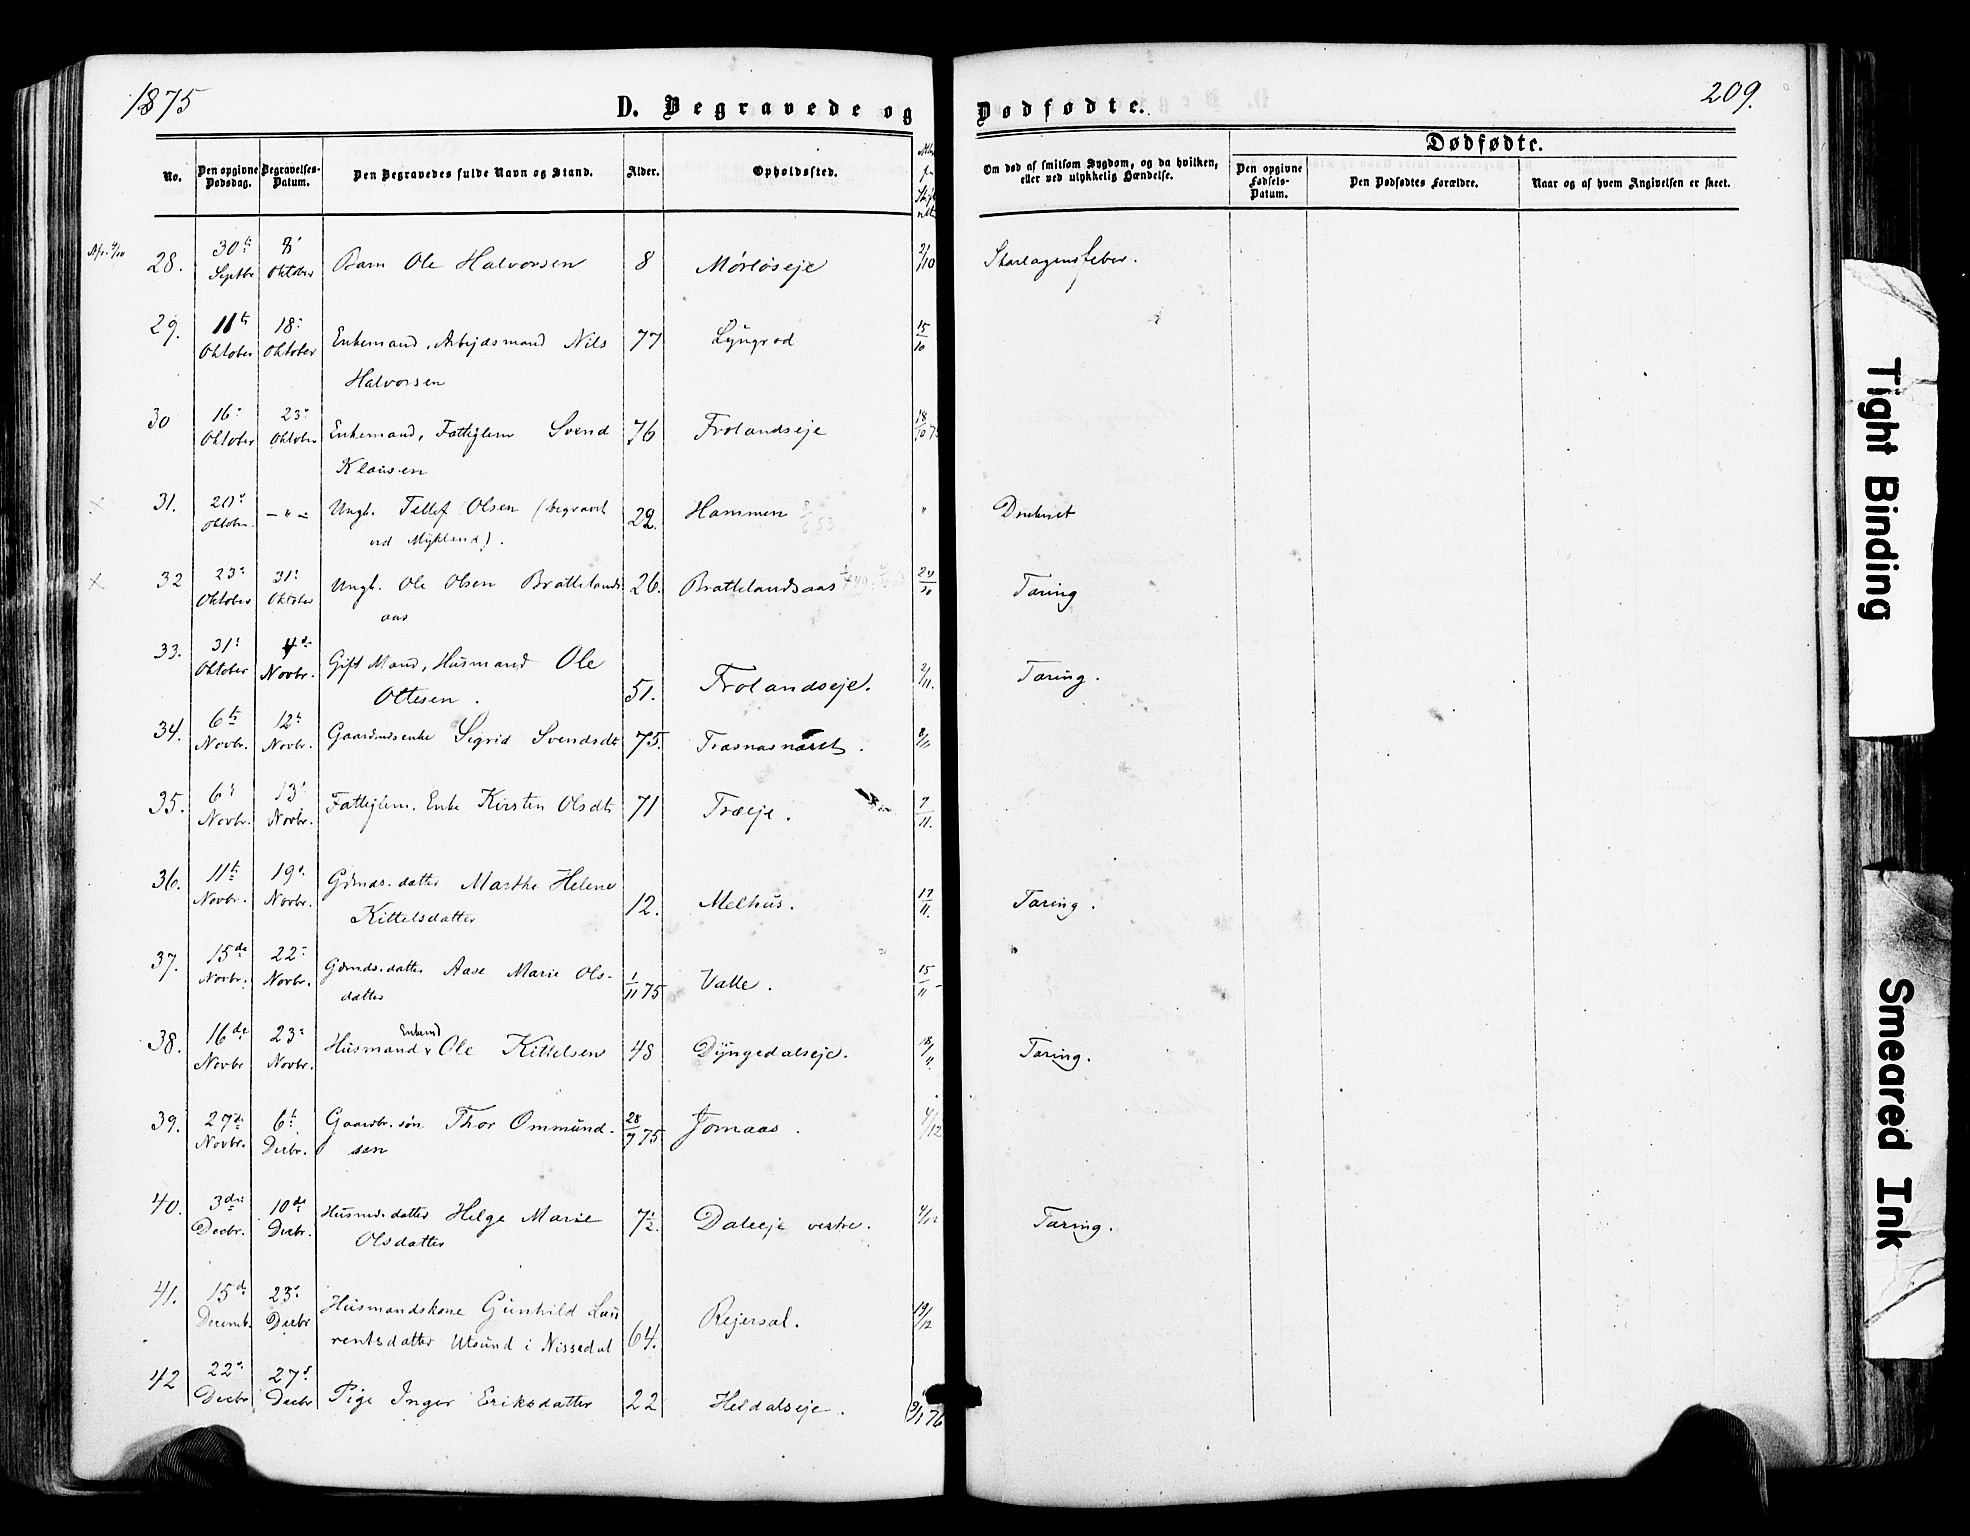 1875
D. Begravede og Dødfødte.
209.
No.
Den opgivne Dødsdag.
Begravelses-Datum.
Den Begravedes fulde Navn og Stand.
Alder.
Opholdssted.
Om død af smitsom Sygdom, og da hvilken,
eller ved ulykkelig Hændelse.
Dødfødte.
Den opgivne Fødsels-Datum.
Den Dødfødtes Forældre.
Naar og af hvem Angivelsen er skeet.
28. 30te Septbr 8' Oktober Barn Ole Halvorsen 8 Mørløseje 2/10 Skarlagensfeber.
29. 11te Oktober 18: Oktober Enkemand, Arbejdsmand Nils 77 Lyngrod 15/10
Halvorsen
30 16: Oktober 23: Oktober Enkemand, Fattiglem Svend 76 Frolandseje 18/10 75
Klausen
31. 20: Oktobr. – " – Ungk. Tellef Olsen (begravet 22. Hammen " Druknet
ved Mykland).
32 23: Oktober 31: Oktober Ungk. Ole Olsen Brattelands 26. Brattelandsaas 24/10 Tæring
aas
33. 31: Oktober 4de Novbr. Gift Mand, Husmand Ole 51. Frolandseje. 2/11. Tæring.
Ottesen.
34. 6te Novbr. 12: Novbr. Gaardmdsenke Sigrid Svendsdt 75. 8/11
35. 6: Novbr. 13: Novbr. Fattiglem, Enke Kirsten Olsdtr 71 Træeje. 7/11.
36. 11te Novbr. 19: Novbr. Gdmds. datter Marthe Helene 12. Melhus. 17/11. Tæring.
Kittelsdatter
37. 15de Novbr. 22: Novbr. Gdmds. datter Aase Marie Ols- 1/11 75 Valle. 15/11
datter
38. 16de Novbr 23: Novbr. Husmand Enkemd Ole Kittelsen 48 Dyngedalseje. 18/11 Tæring.
39. 27de Novbr. 6te Decbr. Gaardbr. søn Thor Ommund- 28/7 75 Jomaas. 4/12
sen
40. 3die Decbr. 10de Decbr. Husmds. datter Helge Marie 7 1/2. Daleeje vestre. 4/12 Tæring.
Olsdatter
41. 15de Decemb. 23: Decbr Husmandskone Gunhild Lau 64. Rejersøl. 19/12
rentsdatter Utsund i Nissedal
42 22: Decbr 27: Decbr Pige Inger Eriksdatter 22 Heldalseje. 3/1 76
Tight Binding
Smeared Ink